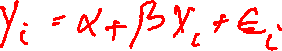 y_i = α + β x_i + ε_i